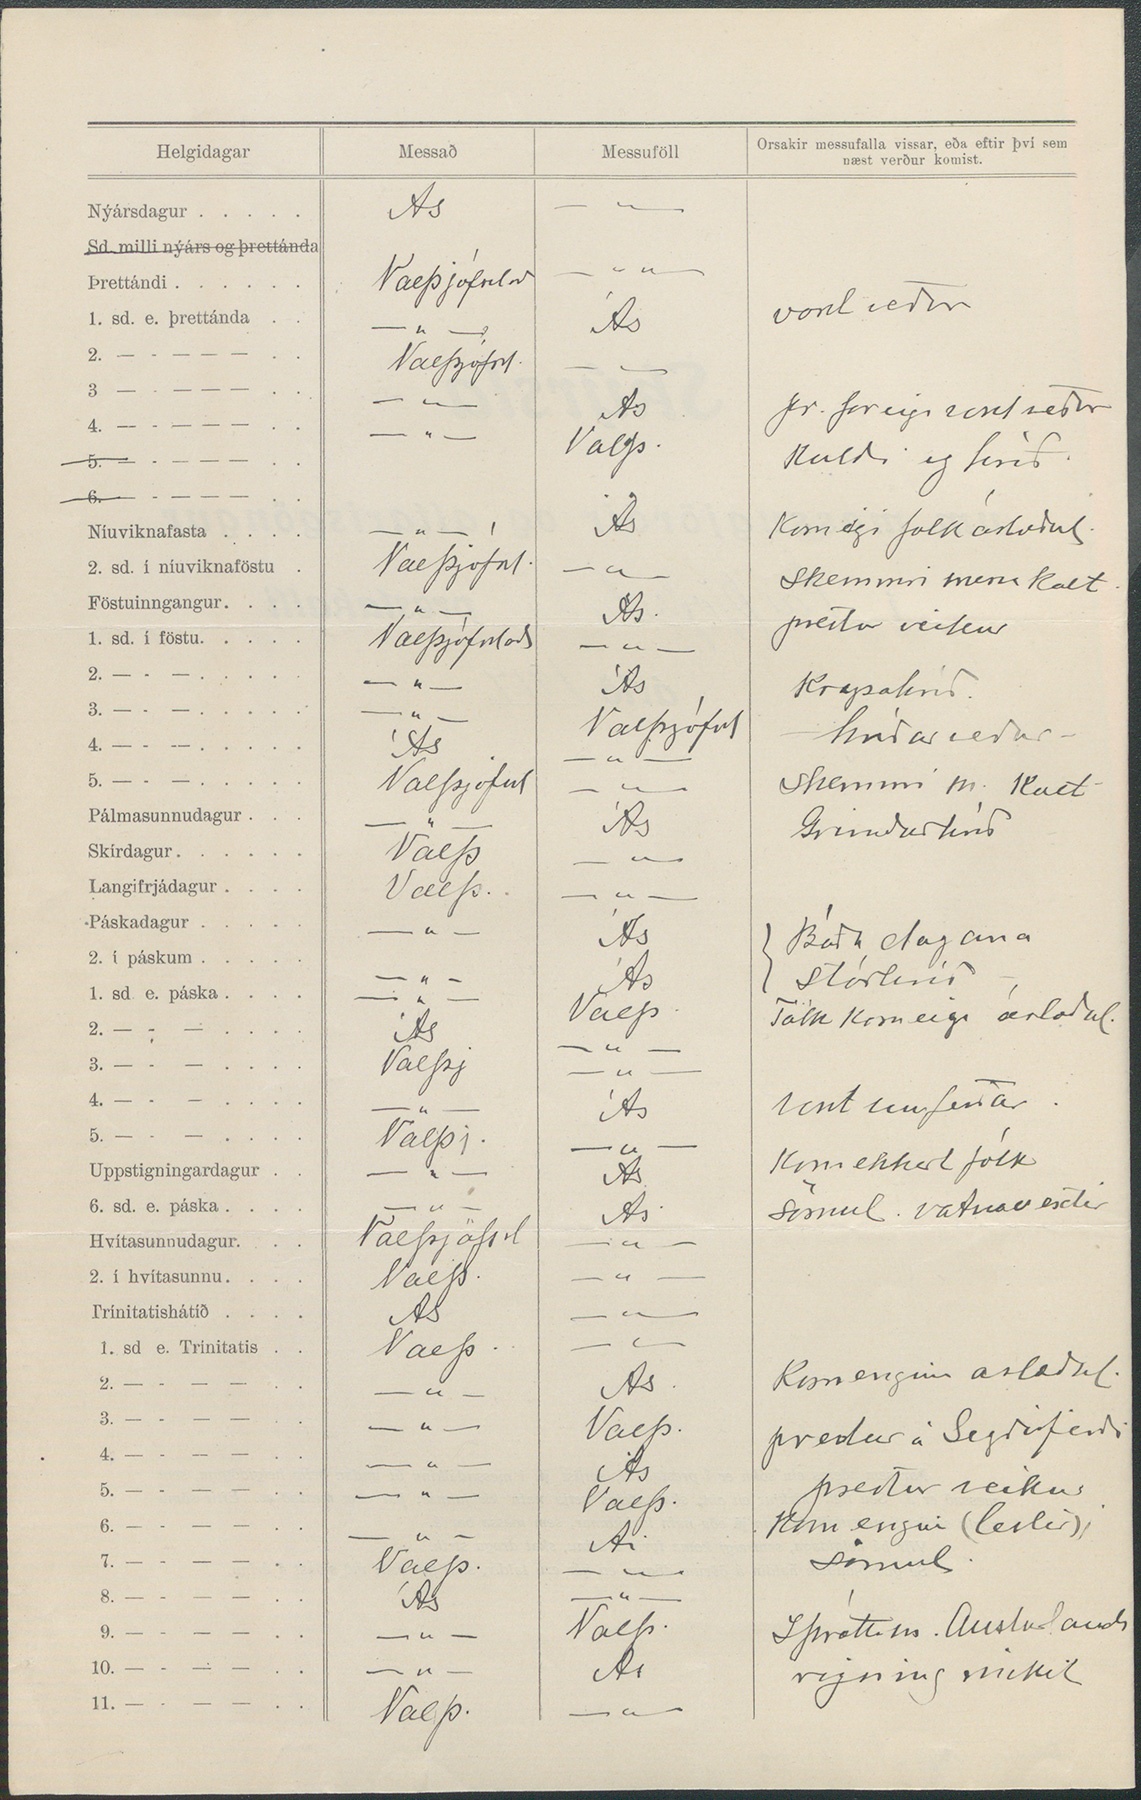 Helgidagar Messað Messuföll Orsakir messufalla vissar, eða eftir því sem
næst verður komist.
Nýársdagur . . . . . Ás — " —
Sd. milli nýárs og þrettánda
Þrettándi . . . . . . Valþjófsstað — " —
1. sd. e. þrettánda . . — " — Ás vont veður
2. — - — — — . . Valþjófsst. — " —
3 — - — — — . . — " — Ás pr. for eigi vont veður
4. — - — — — . . — " — Valþ. Kuldi og hríð.
5. — - — — — . .
6. — - — — — . .
Níuviknafasta . . . . — " — Ás Kom eigi fólk
2. sd. í níuviknaföstu . Valþjófsst. — " — Skemmri messa kalt.
Föstuinngangur. . . . — " — Ás. prestur veikur
1. sd. í föstu. . . . . Valþjófsstað — " —
2. — - — . . . . . — " — Ás Krapahríð.
3. — - — . . . . . — " — Valþjófsst — hríðarveður —
4. — - — . . . . . Ás — " —
5. — - — . . . . . Valþjófsst — " — Skemmri m. Kalt
Pálmasunnudagur . . . — " — Ás Grimdarhríð
Skírdagur. . . . . . Valþ — " —
Langifrjádagur . . . . Valþ. — " —
Páskadagur . . . . . — " — Ás } Báða dagana
2. í páskum . . . . . — " — Ás stórhríð —
1. sd. e. páska . . . . — " — Valþ. Fólk kom eigi
2. — - — . . . . Ás — " —
3. — - — . . . . Valþj — " —
4. — - — . . . . — " — Ás vont umferðar.
5. — - — . . . . Valþj. — " —
Uppstigningardagur . . — " — Ás Kom ekkert fólk
6. sd. e. páska . . . . — " — Ás sömul. vatnavextir
Hvítasunnudagur. . . Valþjófsst — " —
2. í hvítasunnu. . . . Valþ. — " —
Trínitatishátíð . . . . Ás — " —
1. sd e. Trínitatis . . Valþ. — " —
2. — - — — . . — " — Ás. Kom enginn
3. — - — — . . — " — Valþ. prestur á Seyðisfirði
4. — - — — — " — Ás prestur veikur
5. — - — — . . — " — Valþ. Kom enginn
6. — - — — . . — " — Ás sömul.
7. — - — — . . Valþ. — " —
8. — - — — . . Ás — " —
9. — - — — . . — " — Valþ. Íþróttam. Austurlands
10. — - — — . . — " — Ás rigning mikil
11. — - — — . . Valþ. — " —